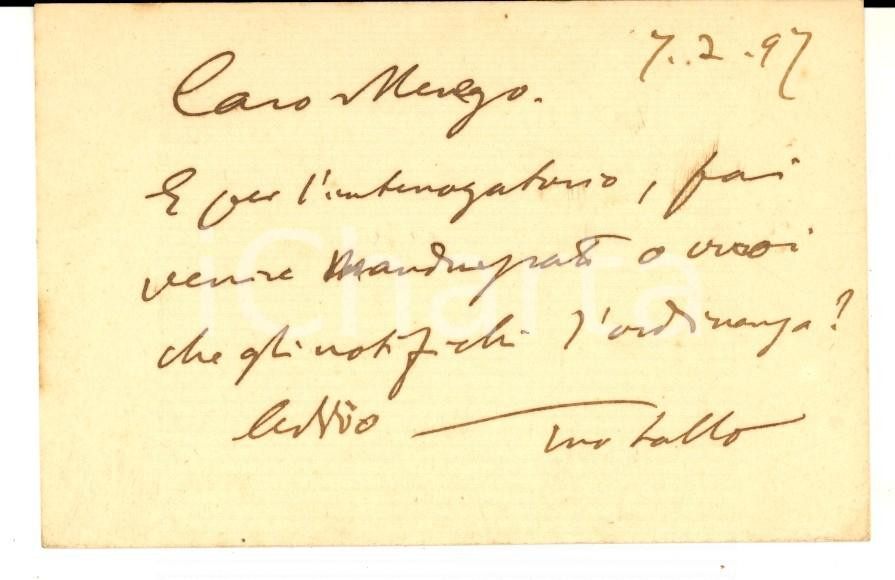 7.2.97
Caro Merego.
E per l'interrogatorio, fai
venire o vuoi
che gli notifichi l'ordinanza?
Addio tuo Lallo
iCharta